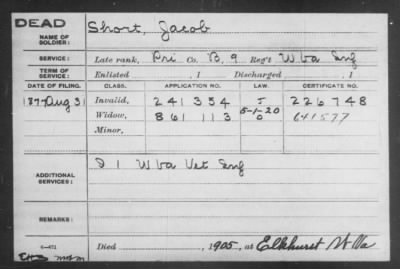 DEAD
NAME OF SOLDIER: Short, Jacob
SERVICE: Late rank, Pri Co. B, 9 Reg't W Va Inf
TERM OF SERVICE: Enlisted , 1 Discharged , 1
DATE OF FILING. CLASS. APPLICATION NO. LAW. CERTIFICATE NO.
1877 Aug 31 Invalid, 241354 226748
5-1-20
Widow, 861113 641577
Minor,
ADDITIONAL SERVICES: 1 W Va Vet Inf
REMARKS:
Died , 1905, at Elkhurst W Va